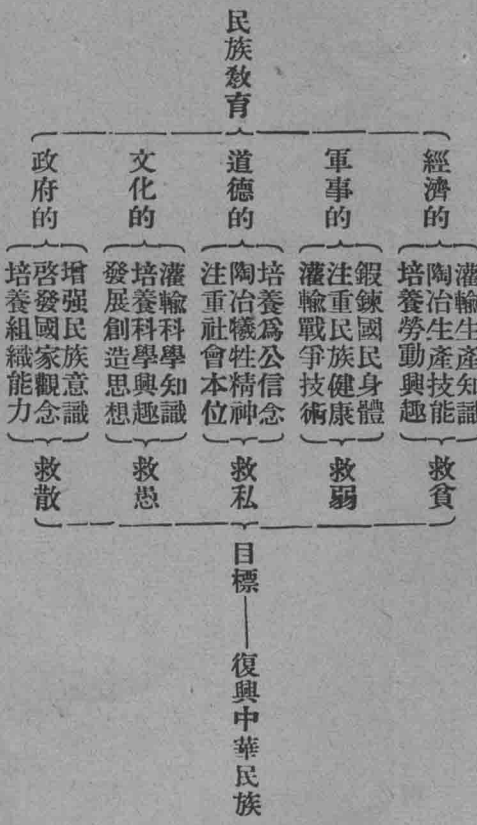 民族敎育
經濟的
灌輸生產知識
陶冶生產技能
培養勞動興趣
救貧
軍事的
鍜鍊國民身體
注重民族健康
灌輸戰爭技術
救弱
道德的
培養爲公信念
陶冶犧牲精神
注重社會本位
救私
文化的
灌輸科學知識
培養科學興趣
發展創造思想
救愚
政府的
增强民族意識
啓發國家觀念
培養組織能力
救散
目標——復興中華民族